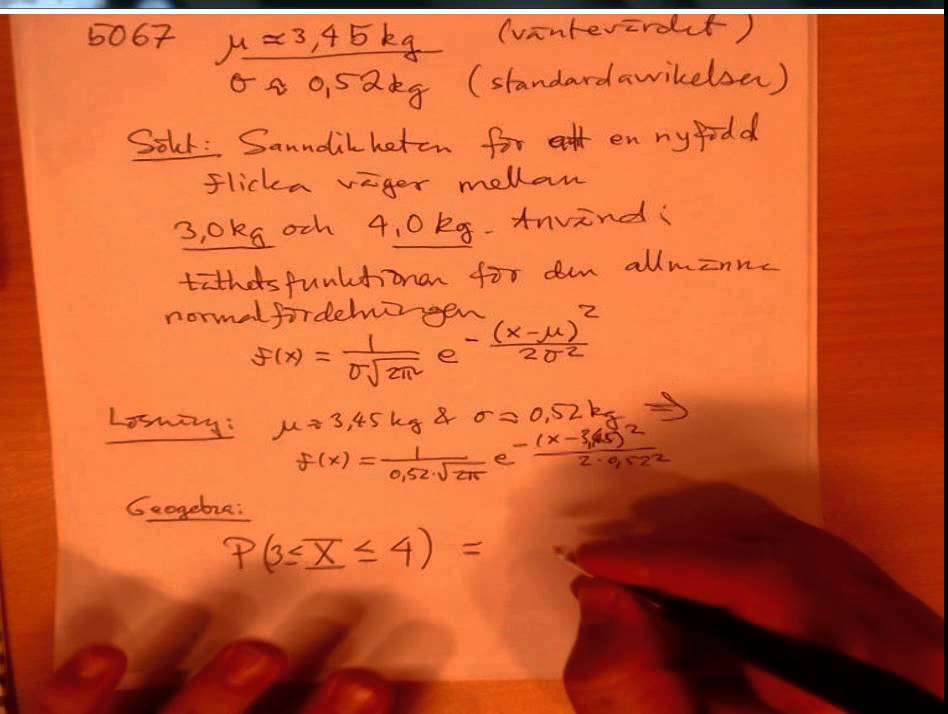 5067 μ ≈ 3,45 kg (väntevärdet)
σ ≈ 0,52 kg (standardavvikelsen)
Sökt: Sanndikheten för att en nyfödd
flicka väger mellan
3,0 kg och 4,0 kg. Använd
täthetsfunktionen för den allmänna
normalfördelningen
f(x) = 1/(σ√2π) e^-(x-μ)²/(2σ²)
Lösning: μ ≈ 3,45 kg & σ ≈ 0,52 kg ⇒
f(x) = 1/(0,52·√2π) e^-(x-3,45)²/(2·0,52²)
Geogebra:
P(3 ≤ X ≤ 4) =